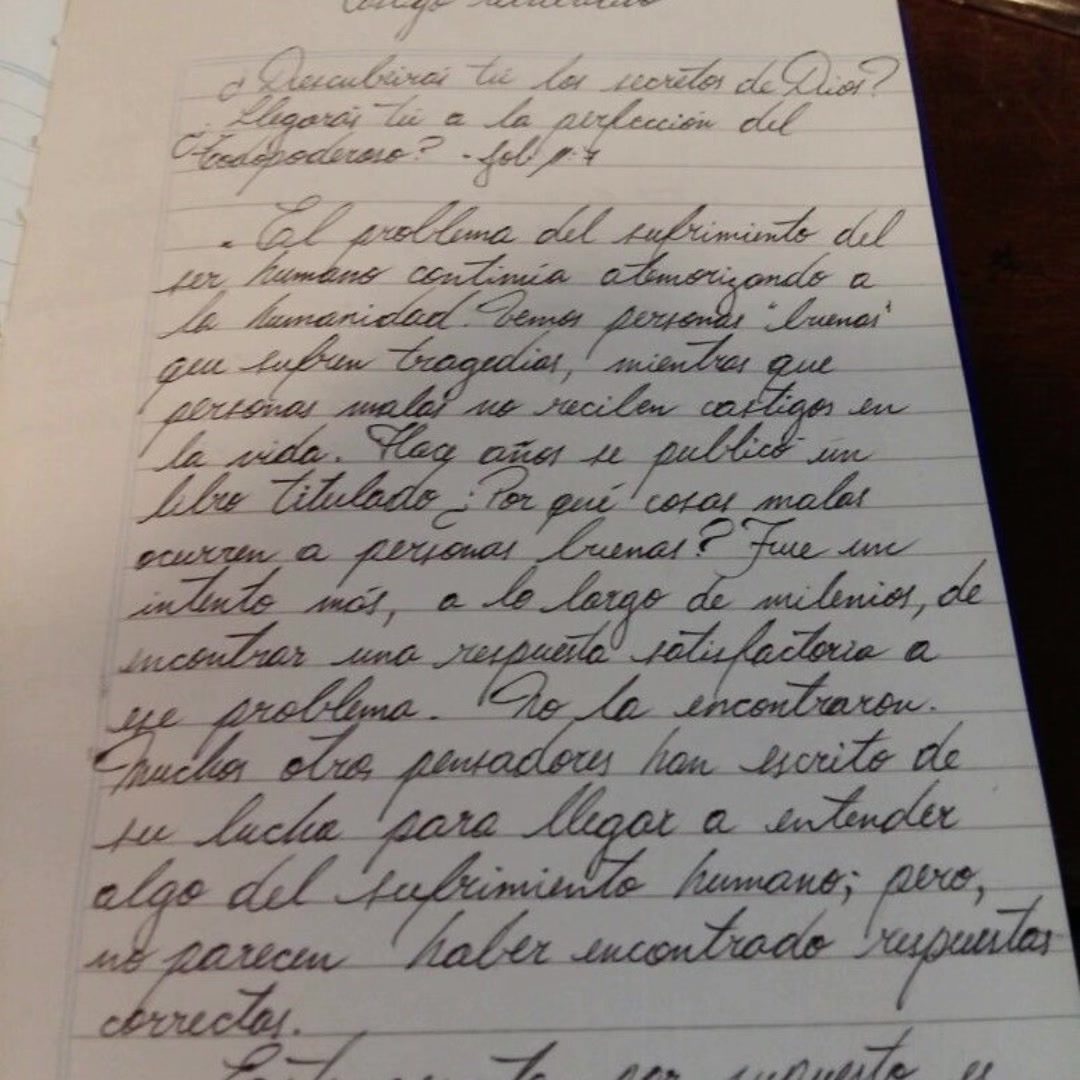 ¿Descubrirás tú los secretos de Dios?
¿Llegarás tú a la perfección del
todopoderoso? - Job 11:7
"El problema del sufrimiento del
ser humano continúa atemorizando a
la humanidad. Vemos personas "buenas"
que sufren tragedias, mientras que
personas malas no reciben castigos en
la vida. Hace años se publicó un
libro titulado ¿Por qué cosas malas
ocurren a personas buenas? Fue un
intento más, a lo largo de milenios, de
encontrar una respuesta satisfactoria a
ese problema. No la encontraron.
Muchos otros pensadores han escrito de
su lucha para llegar a entender
algo del sufrimiento humano; pero,
no parecen haber encontrado respuestas
correctas.